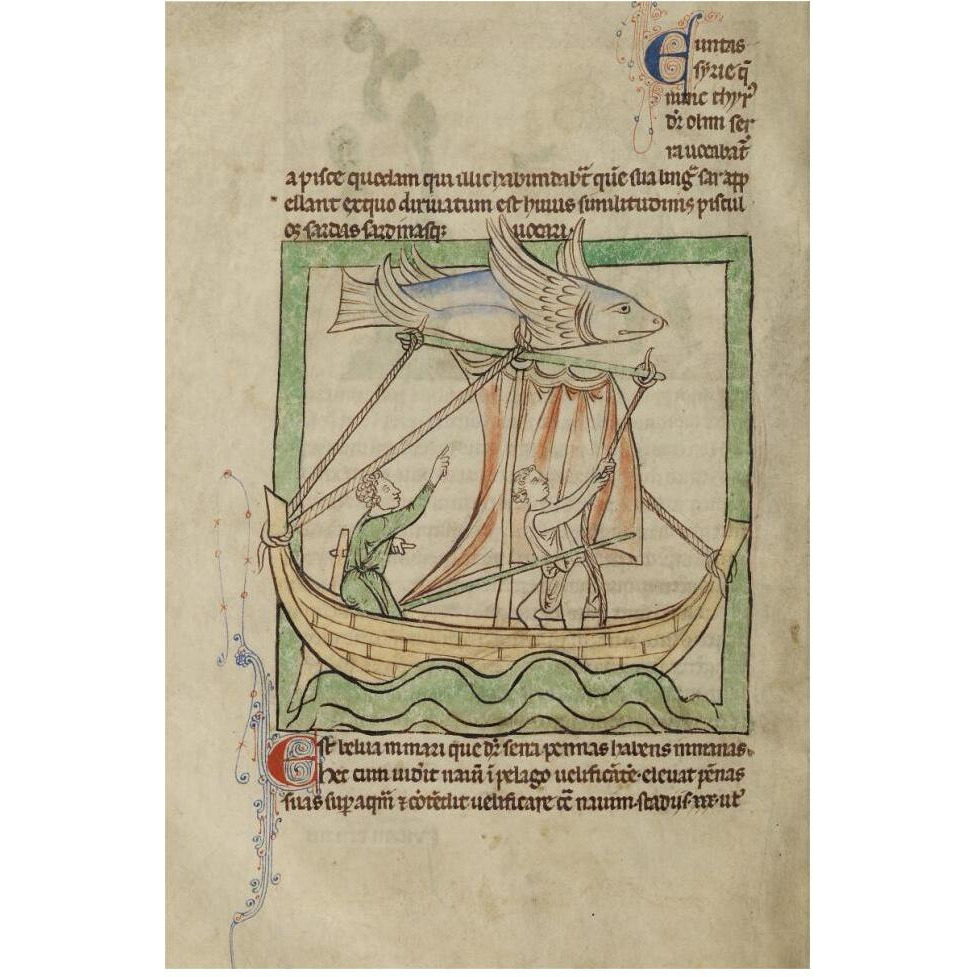 Euntas
syrie q̄
nunc thyr᷒
dr̄ olim ser
ra uocabat᷒
a pisce quodam qui illic habundabt̄ quē sua ling᷒ sar app
ellant exquo diriuatum est huius similitudinis piscul
os sardas sardinasq; uocari.
Est belua in mari que dr̄ serra pennas habens inmanas.
hec cum uiderit nauī ī pelago uelificātē. eleuat pēnas
suas sup aqm̄ ⁊ cōtēdit uelificare cē nauim. stadijs. xxx. ut᷒